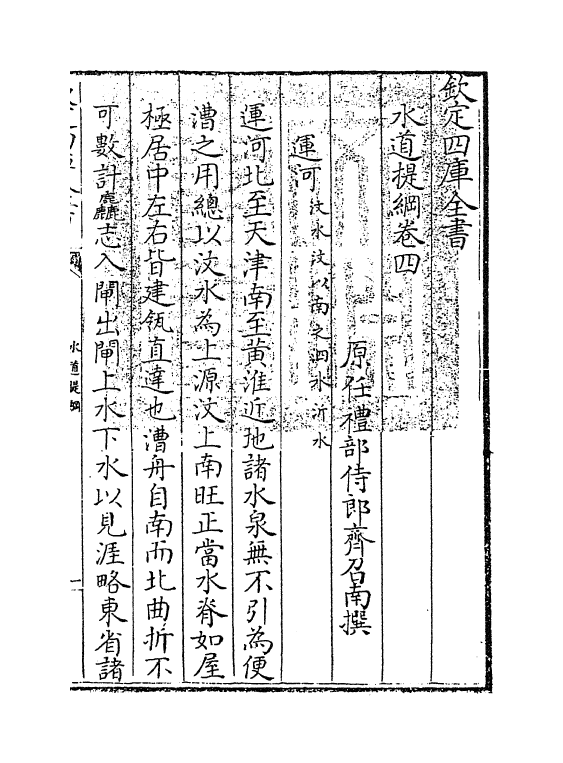 欽定四庫全書
水道提綱卷四
原任禮部侍郎齊召南撰
運河汶水汶以南之泗水沂水
運河北至天津南至黃淮近地諸水泉無不引為便
漕之用總以汶水為上源汶上南旺正當水脊如屋
極居中左右皆建瓴直達也漕舟自南而北曲折不
可數計麤志入閘出閘上水下水以見涯略東省諸
水道提綱
一